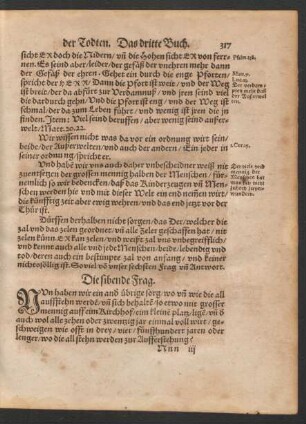 der Todten. Das dritte Buch. 317
sicht ER doch die Nidern/ vñ die Hohen sicht ER von ferr-
nen. Es seind aber/ leider/ der gefäß der vnehren mehr dann
der Gefäß der ehren. Gehet ein durch die enge Pforten/
spricht der HERR/ Dann die Pfort ist weit/ vnd der Weg
ist breit/ der da abfürt zur Verdamnuß/ vnd jren seind viel
die dardurch gehn/ Vnd die Pfort ist eng/ vnd der Weg ist
schmal/ der da zum Leben führt/ vnd wenig ist jren die jn
finden. Item: Viel seind beruffen/ aber wenig seind außer-
welt/ Marc.20.22.
Wir wissen nicht was da vor ein ordnung wirt sein/
beide/ der Außerwelten/ vnd auch der andern: Ein jeder in
seiner ordnung/ spricht er.
Vnd habē wir uns auch daher vnbescheidner weiß nit
zuentsetzen der grossen mennig halben der Menschen/ für-
nemlich so wir bedencken/ daß das Kinderzeugen vñ Men-
schen mehren mit vns vnd mit diser Welt ein end nemen wirt/
die künfftig zeit aber ewig wehren/ vnd das end jetzt vor der
Thür ist.
Dürffen derhalben nicht sorgen/ das Der/ welcher die
zal vnd das zelen geordnet/ vñ alle Zeler geschaffen hat/ nit
zelen künn. ER kan zelen/ vnd weyst zal vns vnbegreifflich/
vnd kennt auch alle vnd jede Menschen/ beide/ lebendig vnd
tod/ deren auch ein bestimpte zal vor jm ist/ vnd keiner
nichts ... ist. So viel vō vnser sechsten Frag vñ Antwort.
Die sibende Frag.
NVn haben wir ein and übrige sorg/ wo vñ wie die all
aufstehn werdē/ vñ sich behaltē/ so etwo mit grosser
mennig auff eim Kirchhof/ ein kleinē plan/ ligē/ vñ ö
auch wol alle zehen oder zwentzig jar einmal voll wirt/ ge-
schweigen wie offt in drey/ vier/ fünffhundert jaren oder
lenger/ wo die all stehn werden zur Aufferstehung?
Nnn iij